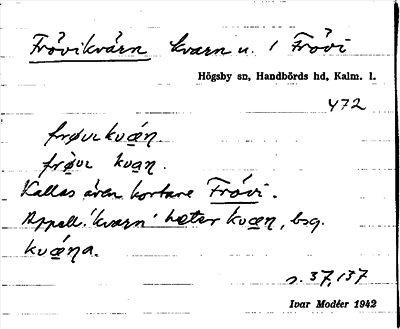 Frövikvärn kvarn u. / Frövi
Högsby sn, Handbörds hd, Kalm. l.
472
frøvɩkvǽn.
frø̀vɩ kvæn.
Kallas även kortare Frövi.
Appell. 'kvarn' heter kvæn, bsg.
kvǽna.
s. 37, 137
Ivar Modéer 1942